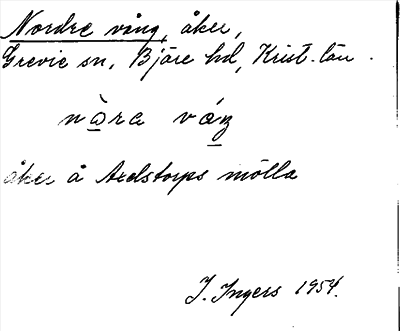 Nordre vång, åker,
Grevie sn, Bjäre hd, Krist. län.
nòra váŋ
åker å Axelstorps mölla
I. Ingers 1954.